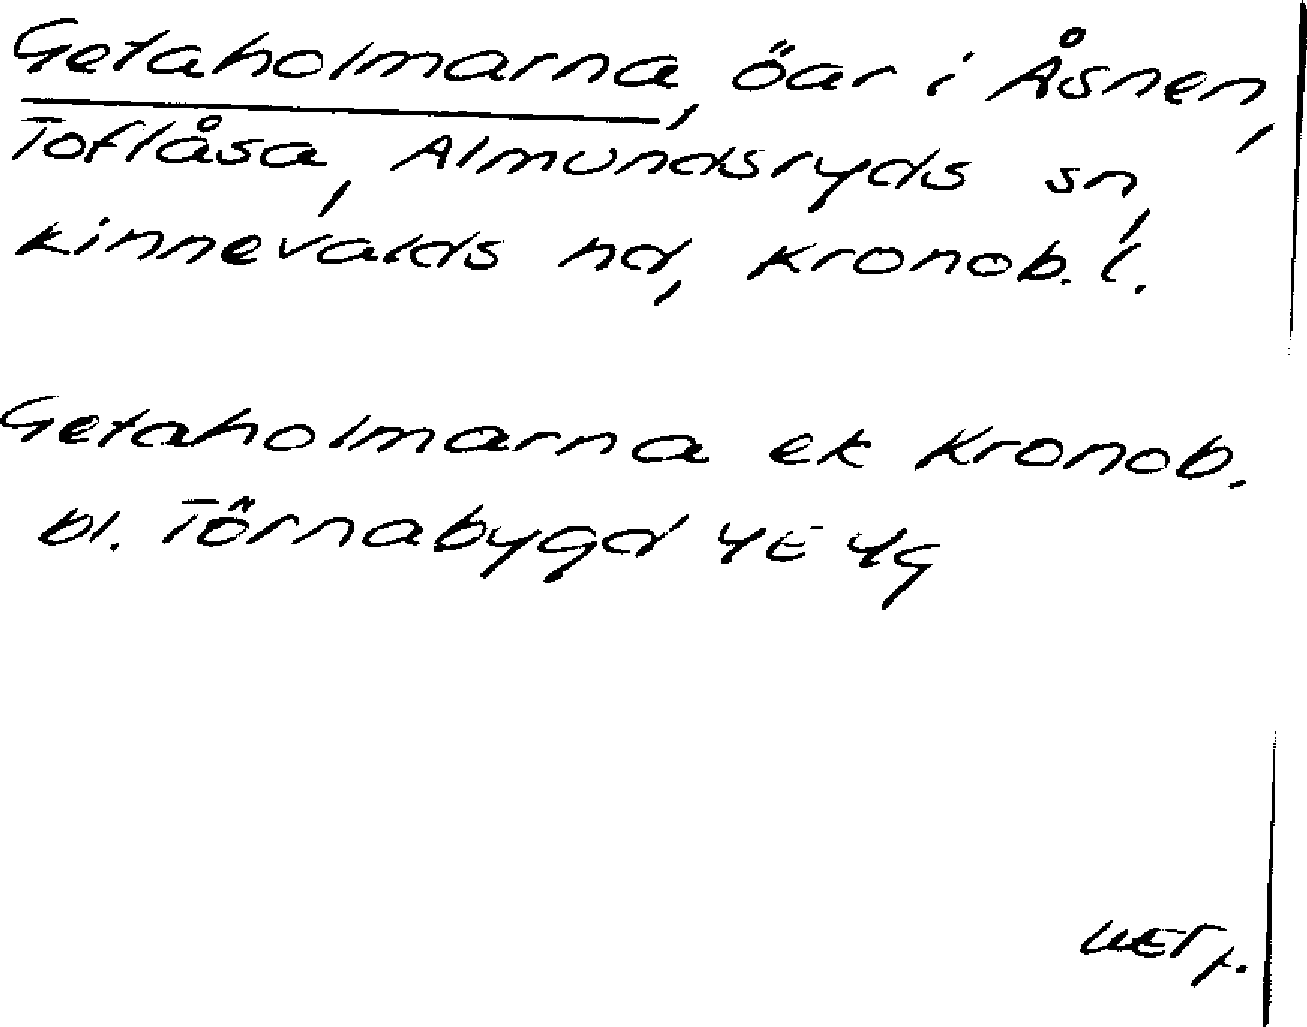 Getaholmarna, öar i Åsnen,
Toftåsa, Almundsryds sn,
Kinnevalds hd, Kronob. l.
Getaholmarna ek Kronob.
bl. Törnabygd 4E 4g